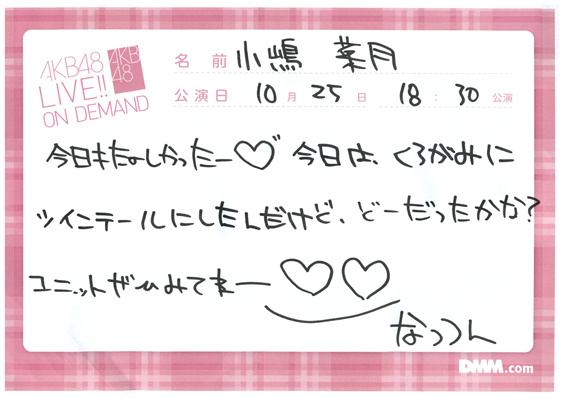 AKB48
LIVE!!
ON DEMAND
AKB
48
名 前 小嶋 菜月
公演日 10月 25日 18:30 公演
今日もたのしかったー♡ 今日は、くろがみに
ツインテールにしたんだけど、どーだったかな?
ユニットぜひみてねー♡♡
なっつん
DMM.com